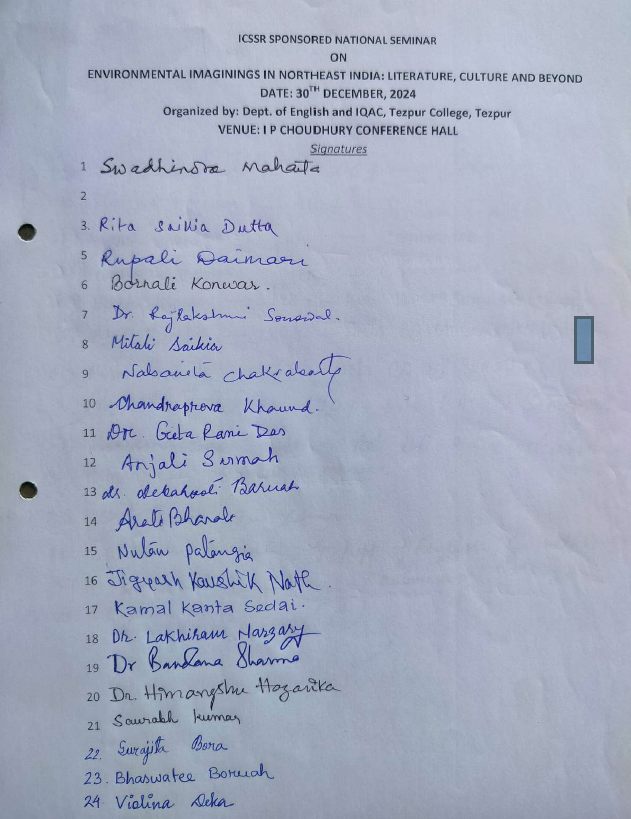 ICSSR SPONSORED NATIONAL SEMINAR
ON
ENVIRONMENTAL IMAGININGS IN NORTHEAST INDIA: LITERATURE, CULTURE AND BEYOND
DATE: 30TH DECEMBER, 2024
Organized by: Dept. of English and IQAC, Tezpur College, Tezpur
VENUE: I P CHOUDHURY CONFERENCE HALL
Signatures
1 Swadhinora Mahanta
2
3. Rita Saikia Dutta
5 Rupali Daimari
6 Bornali Konwar.
7 Dr. Rajlakshmi Sonowal.
8 Mitali Saikia
9 Nabanita Chakraborty
10 Chandraprova Khaund.
11 Dr. Gita Rani Das
12 Anjali Surmah
13 Dr. Baruah
14 Arati Bharali
15 Nutan Patangia
16 Jigyash Kaushik Nath
17 Kamal Kanta Sedai.
18 Dr. Lakhiram Narzary
19 Dr Bandana Sharma
20 Dr. Himangshu Hazarika
21 Saurabh Kumar
22. Surajita Bora
23. Bhaswatee Boruah
24 Violina Deka